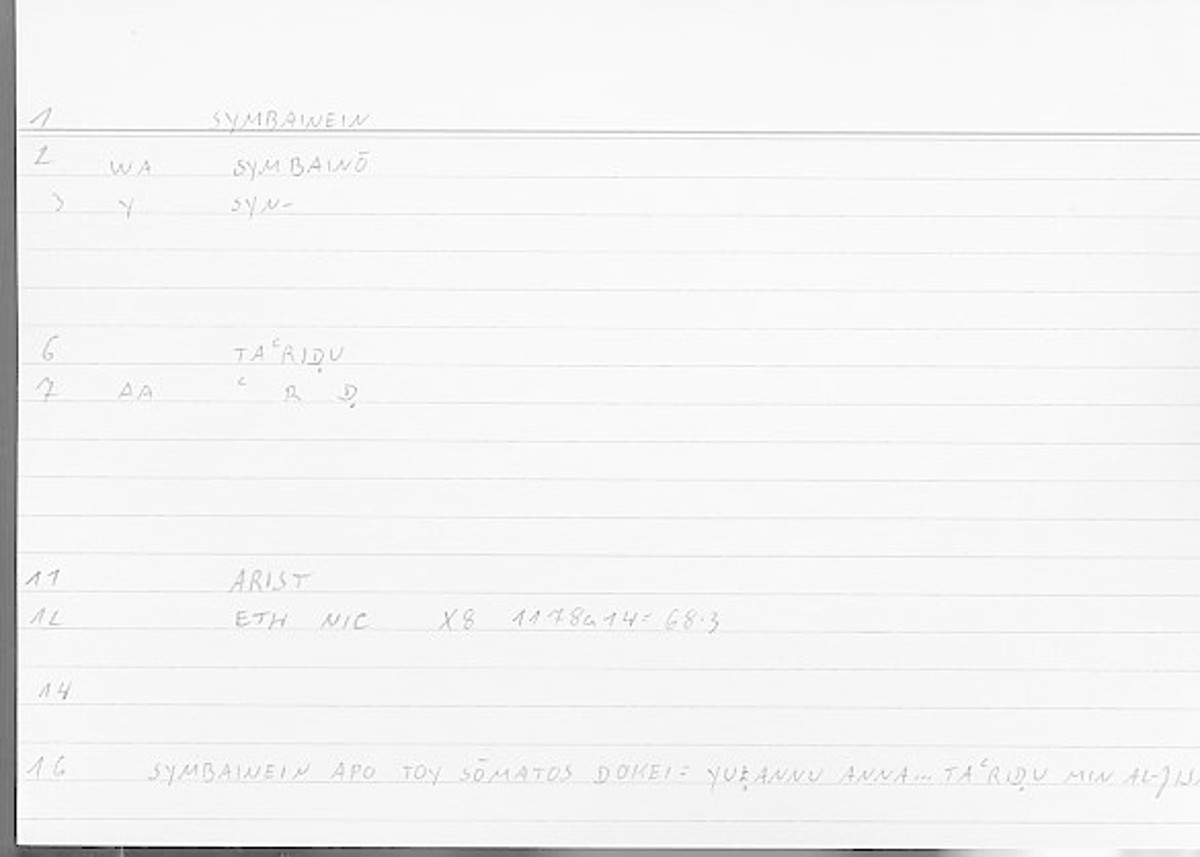 1 SYMBAINEIN
2 WA SYMBAINŌ
3 Y SYN-
6 TAᶜRIḌU
7 AA ᶜ R Ḍ
11 ARIST
12 ETH NIC X8 1178a14= 68.3
14
16 SYMBAINEIN APO TOY SŌMATOS DOKEI= YUẒANNU ANNA... TAᶜRIḌU MIN AL-JIS